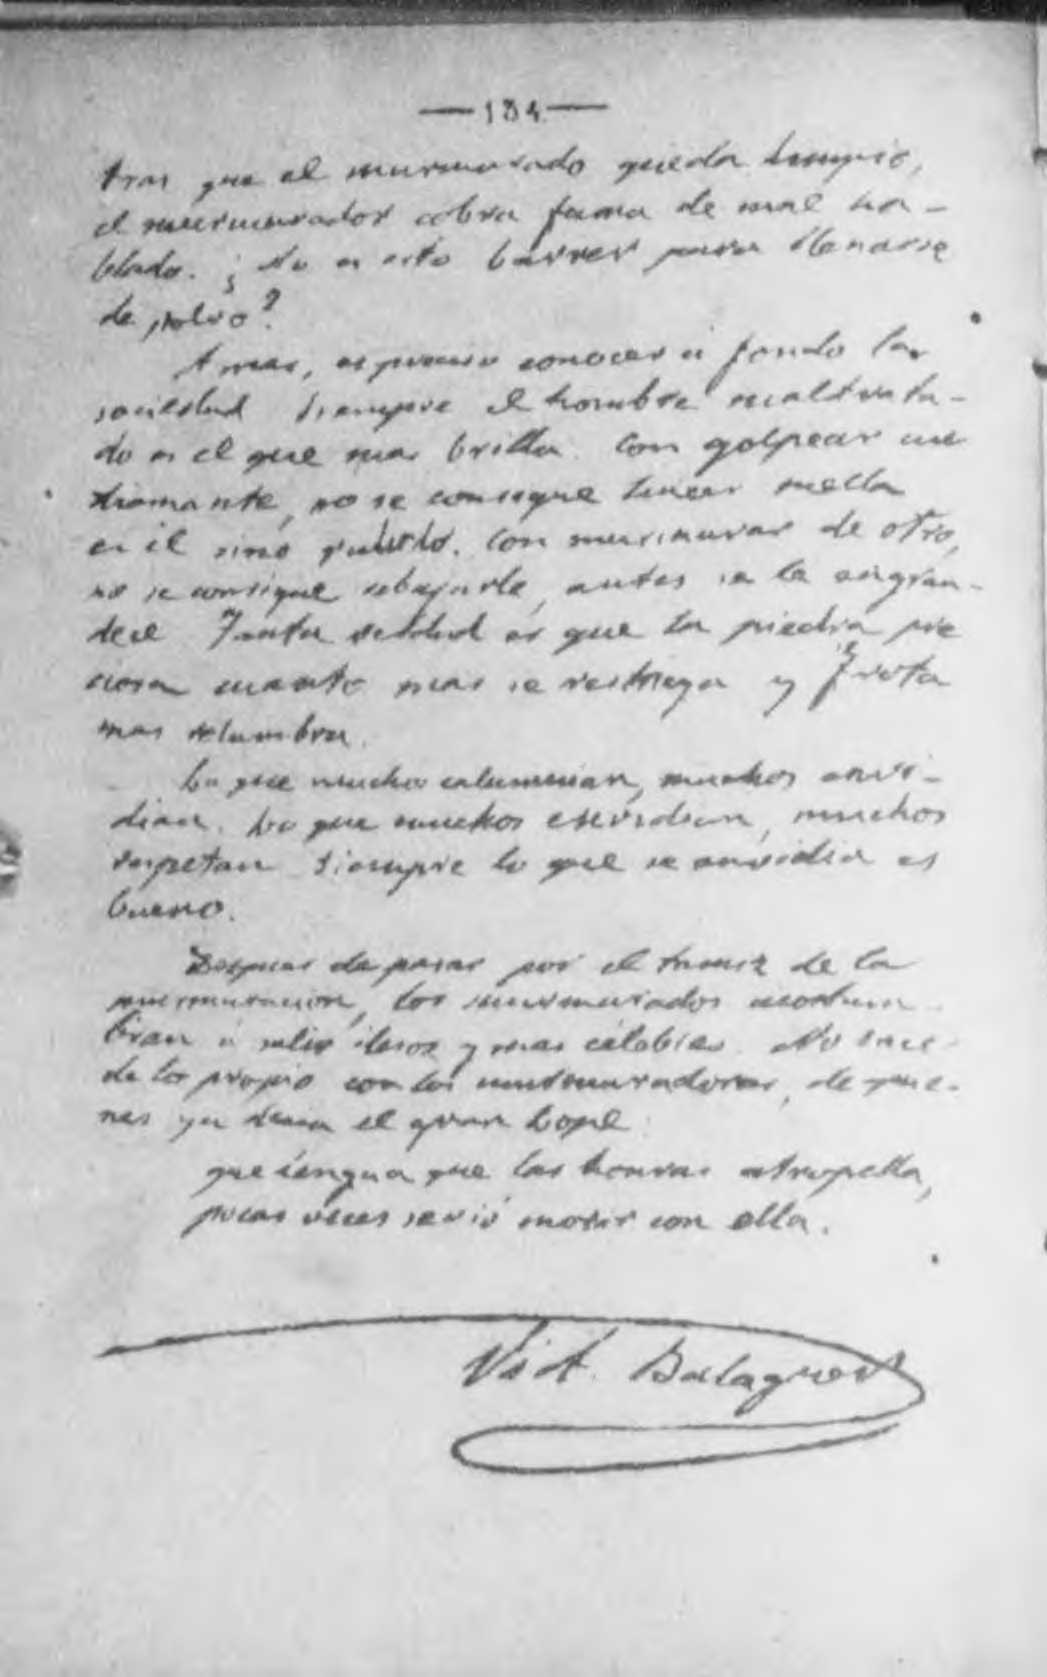 — 134 —
tras que el murmurado queda limpio,
el murmurador cobra fama de mal ha-
blado. ¿No es esto barrer para llenarse
de polvo?
A mas, es preciso conocer á fondo la
sociedad siempre el hombre maltrata-
do es el que mas brilla. Con golpear un
diamante, no se consigue hacer mella
en él sino pulirlo. Con murmurar de otro,
no se consigue rebajarle, antes se le engran-
dece. Tanta verdad es que la piedra pre
ciosa cuanto mas se restriega y frota
mas relumbra.
Lo que muchos calumnian, muchos envi-
dian. Lo que muchos envidian, muchos
respetan. Siempre lo que se envidia es
bueno.
Despues de pasar por el tamiz de la
murmuracion, los murmurados acostum-
bran á salir ilesos y mas célebres. No suce-
de lo propio con los murmuradores, de quie-
nes ya decia el gran Lope:
que lengua que las honras atropella,
pocas veces se vió morir con ella.
Vict. Balaguer